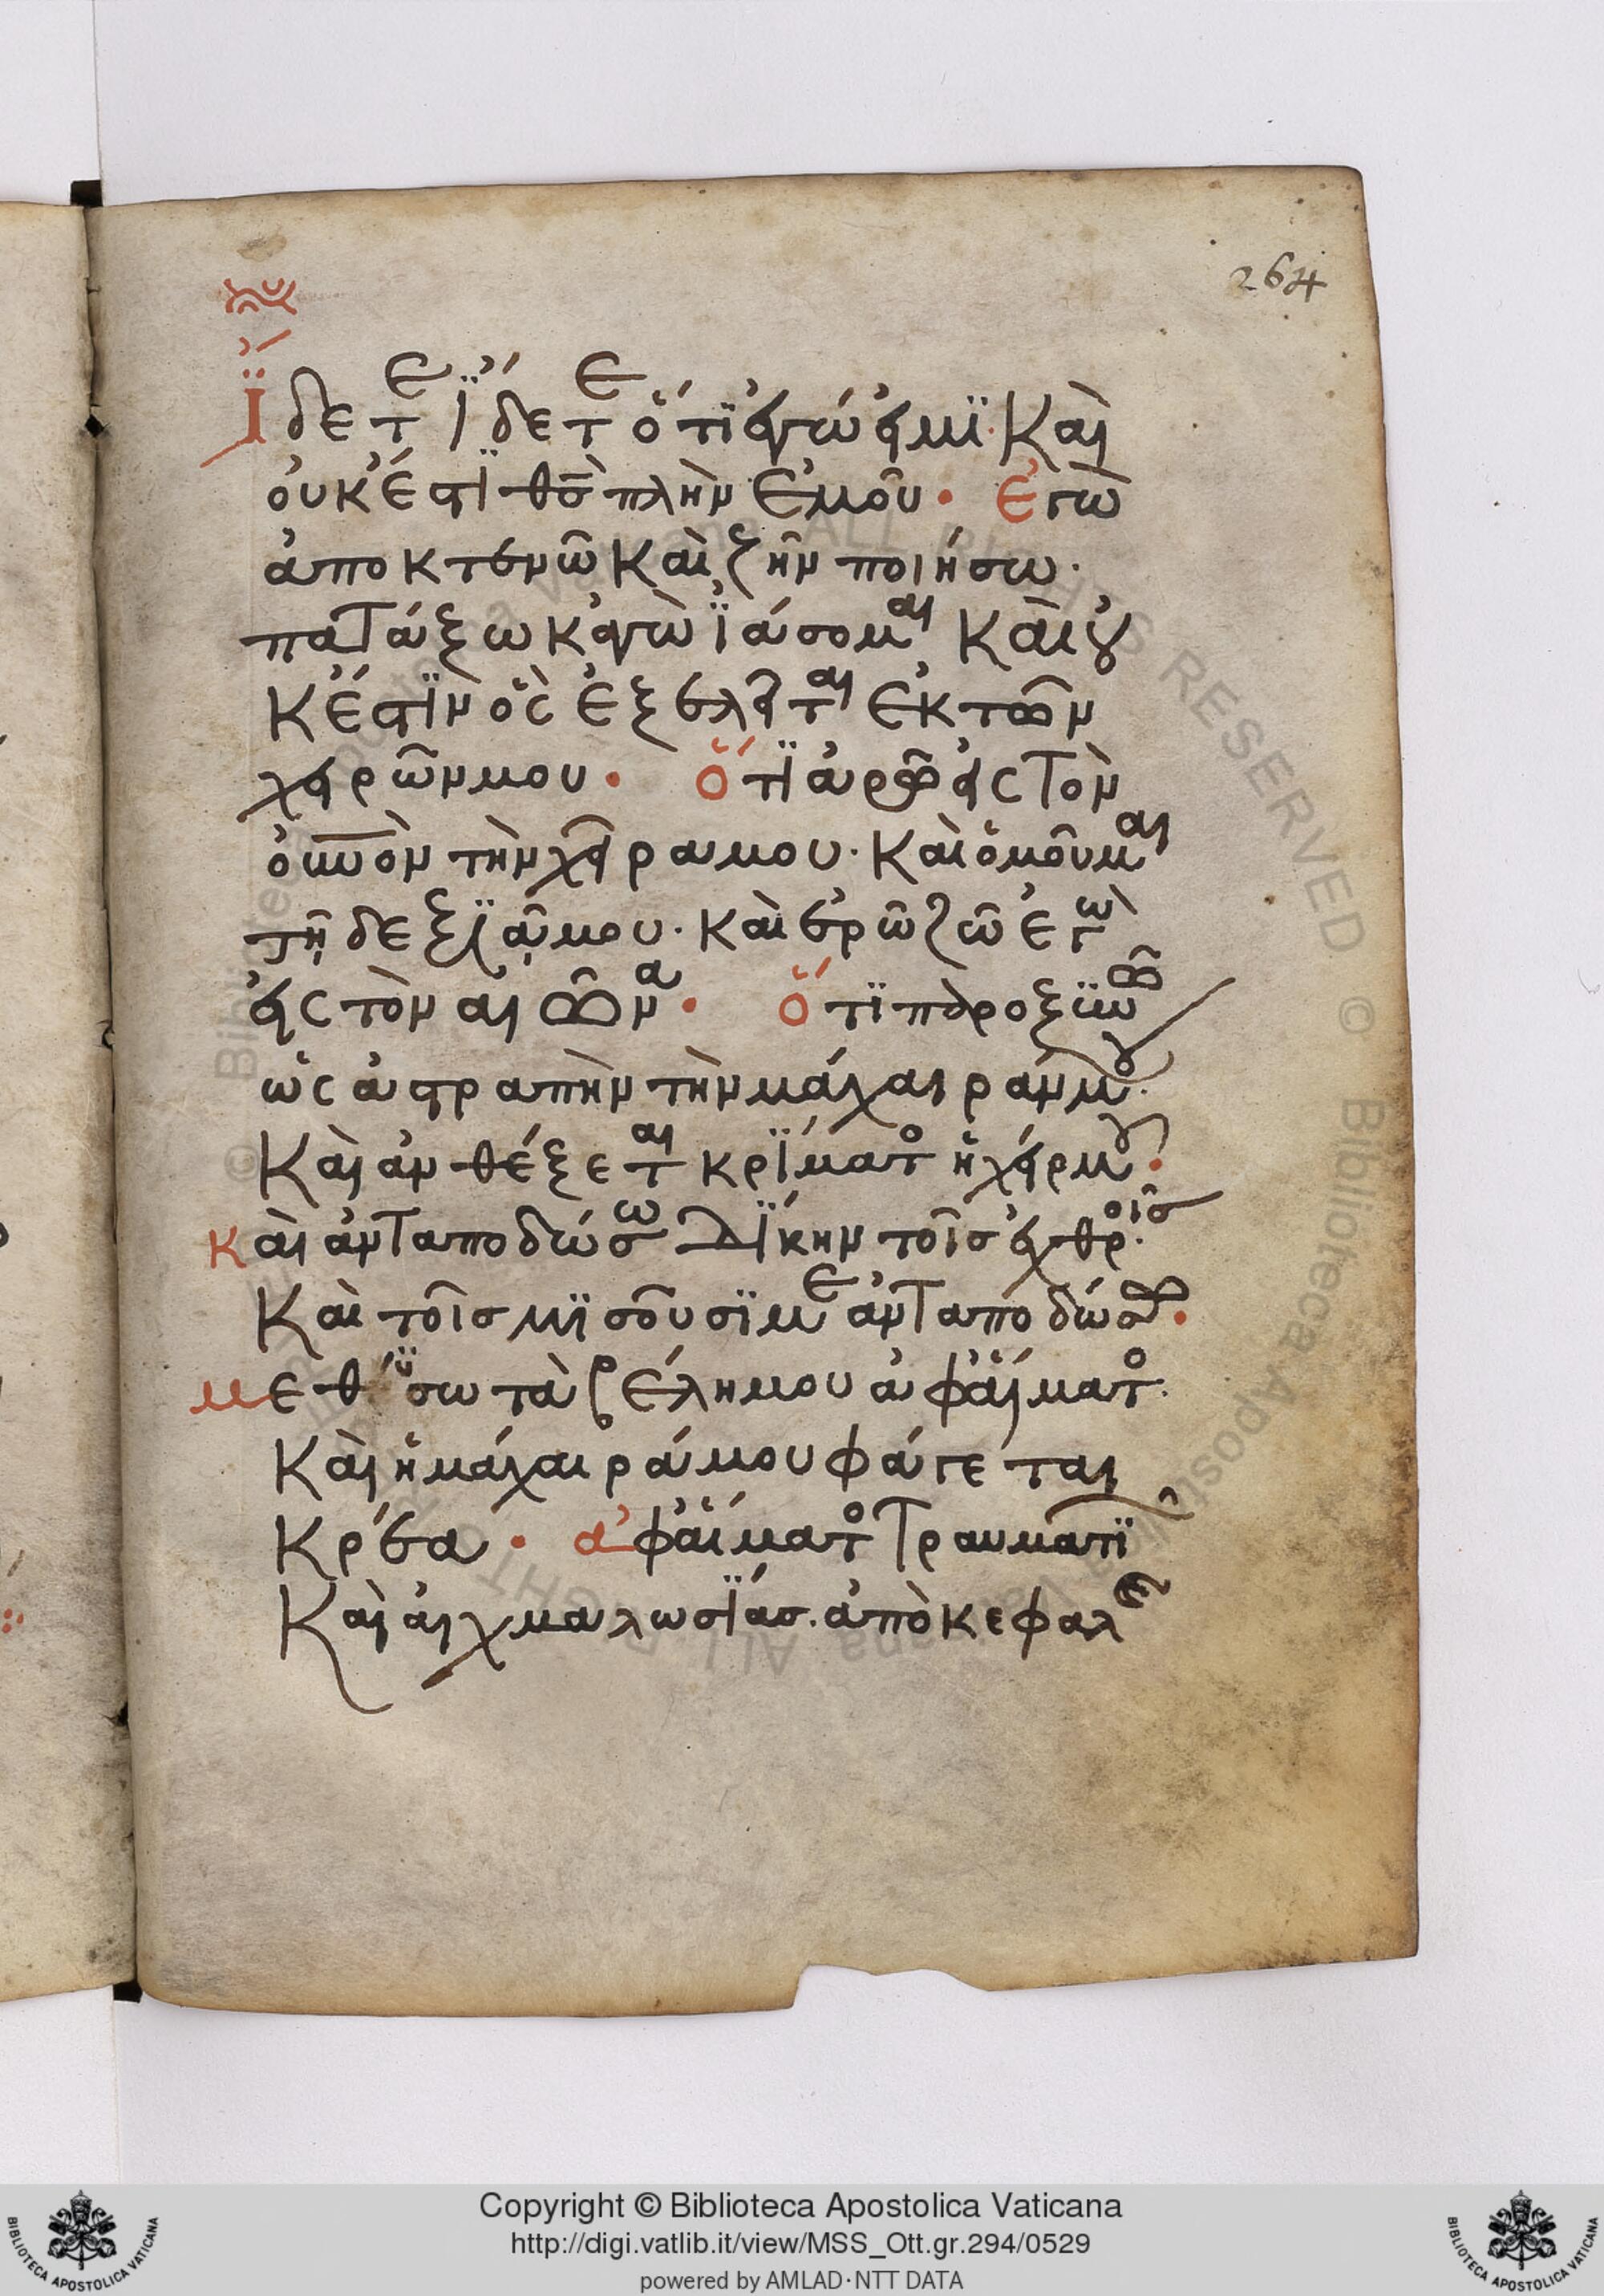 264
ἴδετε ἴδετε ὅτι ἐγώ εἰμι· καὶ
οὐκ ἔστι θσ̅ πλὴν ἐμοῦ· ἐγὼ
ἀποκτενῶ καὶ ζῆν ποιήσω·
πατάξω κἀγὼ ἰάσομαι καὶ οὐ
κ ἔστιν ὃς ἐξελεῖται ἐκ τῶν
χειρῶν μου· ὅτι ἀρῶ εἰς τὸν
οὐνον τὴν χεῖρα μου· καὶ ὀμοῦμαι
τῆ δεξιᾷ μου· καὶ ἐρῶ ζῶ ἐγὼ
εἰς τὸν αἰῶνα· ὅτι παροξυνῶ
ὡς ἀστραπὴν τὴν μάχαιράν μου·
καὶ ἀνθέξεται κρίματο ἡ χείρ μου·
καὶ ἀνταποδώσω δίκην τοῖσ ἐχθροῖσ·
καὶ τοῖσ μισοῦσί με ἀνταποδώσω·
μεθύσω τὰ βέλη μου ἀφ' αἵματο·
καὶ ἡ μάχαιρά μου φάγεται
κρέα· ἀφ' αἵματο τραυματι
καὶ αἰχμαλωσίασ· ἀπὸ κεφαλῆς
Copyright © Biblioteca Apostolica Vaticana
http://digi.vatlib.it/view/MSS_Ott.gr.294/0529
powered by AMLAD·NTT DATA
BIBLIOTECA APOSTOLICA VATICANA
BIBLIOTECA APOSTOLICA VATICANA